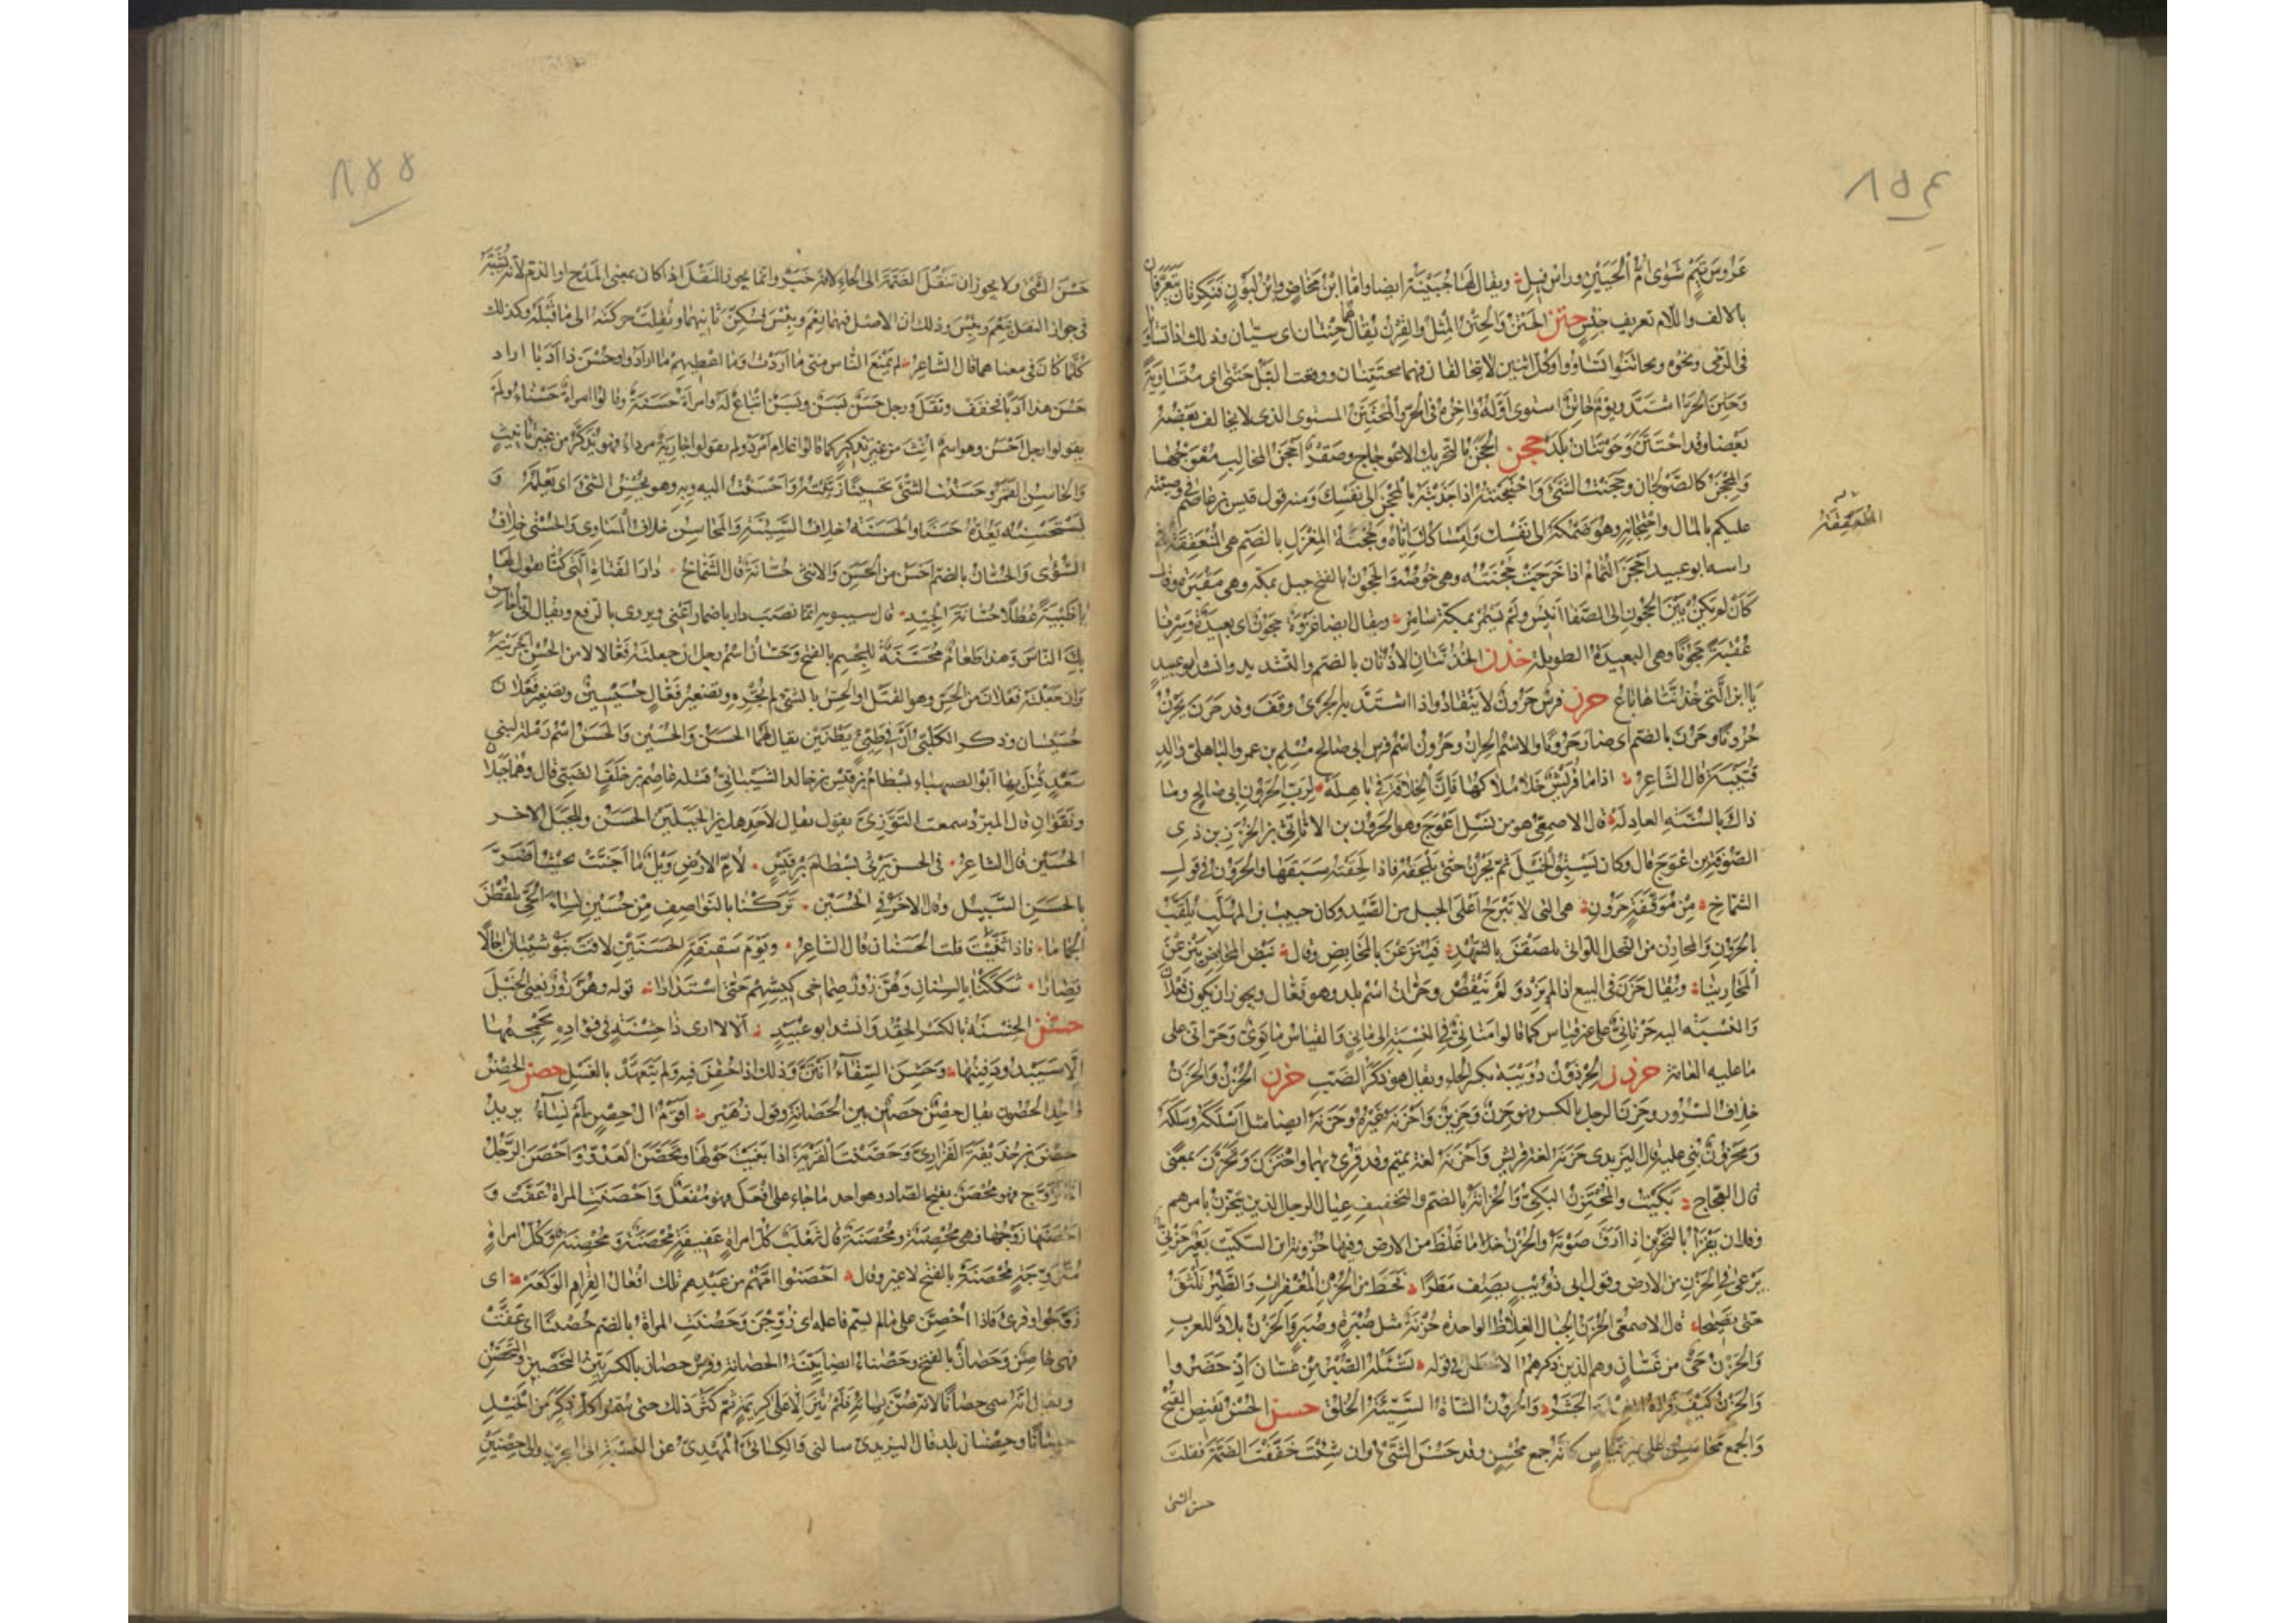 ٨٥٤
عَرُوسَ تَيْمٍ شَوَى أُمِّ الحُبَيْنِ ورأس فيل ويقال لها حُبَيْنَة ايضا وامّا ابن مَخَاضٍ وابن لَبُونٍ فنكرتان يتعرّفان
بالالف واللام تعريف جنسٍ حتن الحَتْنُ والحِتْنُ المِثلُ والقِرنُ يقال هما حِتْنَان اى سيّان وذلك اذا تساويا
فى الرَّمى ونحوه وتحاتَنُوا تَسَاوَوا وكل اثنين لا يتخالفان فهما محتتنان ووقعت النَّبْلُ حَتَنَى اى متساوية
وحَتِنَ الحرّ اشتدّ ويومٌ حَاتِنٌ استوى اوّله وآخره فى الحرّ والمُحْتَتِنُ المستوى الذى لا يخالف بعضه
بعضا وقد احْتَتَنَ وحَوْتَنَان بلد حجن الحَجَنُ بالتحريك الاعوجاج وصقر أَحْجَنُ المخاليب مُعْوَجُّها
والمِحْجَنُ كالصَّوْلَجان وحَجَنْتُ الشئَ واحْتَجَنْتُه اذا جذبته بالمِحْجَن الى نفسك ومنه قول قيس بن عاصم فى وصيّته
عليكم بالمال واحْتِجَانِه وهو ضَمُّكَهُ الى نفسك وامساكك ايّاه وحُجْنَةُ المِغْزَلِ بالضم هى المُنْعَقِفَةُ فى
راسه ابو عبيد أَحْجَنَ الثُّمامُ اذا خرجت حُجْنَتُه وهى خُوصُه والحَجُونُ بالفتح جبل بمكة وهى مقبرة وقال
كَأَنْ لَمْ يَكُنْ بَيْنَ الحَجُونِ الى الصَّفَا أَنِيسٌ ولَمْ يَسْمُرْ بمكةَ سَامِرُ ويقال ايضا غَزْوَةٌ حَجُونٌ اى بعيدة وسِرْنا
عُقْبَةً حَجُونًا وهى البعيدة الطويلة حذن الحُذُنَّتَانِ الأُذُنَانِ بالضم والتشديد وانشد ابو عبيد
يَا ابنَ الَّتى حُذُنَّتَاهَا بَاعُ حرن فرسٌ حَرُونٌ لا ينقاد واذا اشتدّ به الجَرْىُ وقف وقد حَرَنَ يَحْرُنُ
حُرُونًا وحَرُنَ بالضم اى صار حَرُونًا والاسم الحِرَانُ وحَرُونٌ اسم فرس ابى صالح مسلم بن عمرو الباهلى والد
قُتَيْبَةَ قال الشاعر اذا مَا قُرَيْشٌ خَلَا مُلْكُهَا فَإِنَّ الخِلَافَةَ فى بَاهِلَهْ لِرَبِّ الحَرُونِ ابى صَالِحٍ وما
ذاكَ بالسُّنَّةِ العادِلَهْ قال الاصمعىّ هو من نَسْلِ أَعْوَجَ وهو الحَرُونُ بن الأَثَاثِىّ بن الخُزَزِ بن ذى
الصُّوفَةِ بن أَعْوَجَ قال وكان يَسْبِقُ الخيلَ ثم يَحْرُنُ حتى تَلْحَقَهُ فاذا لَحِقَتْهُ سَبَقَها والحَرُونُ فى قول
الشَّمّاخِ مِنْ مُوَقَّفَةٍ حَرُونِ هى التى لا تبرح أَعْلَى الجبل من الصَّيد وكان حبيب بن المهلّب يُلَقَّبُ
بالحَرُونِ والمَحَارِنُ من النحل اللواتى يَلْصَقْنَ بالشُّهْدِ فَيُنْتَزَعْنَ بالمَحَابِضِ وقال نَبْضُ المَحَابِضِ يَنْزِعْنَ
المَحَارِينَا ويقال حَرَنَ فى البيع اذا لم يزد ولم ينقص وحَرَّانُ اسم بلد وهو فَعَّالٌ ويجوز ان يكون فَعْلَانَ
والنسبة اليه حَرْنَانِىٌّ على غير قياس كما قالوا مَنَانِىٌّ فى النسبة الى مَانِى والقياس مَانَوِىٌّ وحَرَّانِىٌّ على
ما عليه العامّة حرذن الحِرْذَوْنُ دُوَيْبَّةٌ بكسر الحاء ويقال هو ذكر الضَّبّ حزن الحُزْنُ والحَزَنُ
خلاف السرور وحَزِنَ الرجل بالكسر فهو حَزِنٌ وحَزِينٌ وأَحْزَنَهُ غيره وحَزَنَهُ ايضا مثل أَسْلَكَهُ وسَلَكَهُ
ومَحْزُونٌ بُنِىَ عليه قال اليزيدى حَزَنَهُ لغة قريش وأَحْزَنَهُ لغة تميم وقد قُرِئ بهما واحْتَزَنَ وتَحَزَّنَ بمعنى
قال العجّاج بَكَيْتَ والمُحْتَزِنُ البَكِىُّ والحُزَانَةُ بالضم والتخفيف عيال الرجل الذين يتحزّن بامرهم
وفلان يقرأ بالتحزين اذا أَرَقَّ صَوْتَهُ والحَزْنُ ما غَلُظَ من الارض وفيها حُزُونَة ابن السكّيت بعير حَزْنِىٌّ
يَرْعَى فى الحَزْنِ من الارض وقول ابى ذُؤَيْبٍ يصف مَطَرًا فَحَطَّ من الحُزَنِ المُغْفِرَاتِ والطَّيْرُ تَلْثَقُ
حَتَّى تَصِيحَا قال الاصمعى الحُزَنُ الجبال الغِلاظ الواحدة حُزْنَةٌ مثل صُبْرَةٍ وصُبَرٍ والحَزْنُ بلاد للعرب
والحَزْنُ حَىٌّ من غَسّان وهم الذين ذكرهم الاخطل فى قوله تَسْأَلُهُ الصُّبْرُ مِنْ غَسَّانَ اذ حَضَرُوا
والحَزْنُ كَيْفَ قَرَاهُ الغِلْمَةُ الجَشَرُ والحَزُونُ الشاة السيّئة الخُلُقِ حسن الحُسْنُ نقيض القُبْحِ
والجمع محاسن على غير قياس كانه جمع مَحْسَنٍ وقد حَسُنَ الشئُ وان شئت خفّفت الضمّة فقلت
حسن الشئ
المنعقفة
٨٥٥
حَسْنَ الشئُ ولا يجوز ان تنقل الضمّة الى الحاء لانه خَبَرٌ وانما يجوز النقل اذا كان بمعنى المدح او الذم لانه يُشَبَّهُ
فى جواز النقل بِنِعْمَ وبِئْسَ وذلك ان الاصل فيهما نَعِمَ وبَئِسَ فسكن ثانيهما ونقلت حركته الى ما قبله وكذلك
كلّ ما كان فى معناهما قال الشاعر لم يَمْنَعِ الناسُ مِنِّى ما أَرَدْتُ وما أُعْطِيهِمُ ما أَرَادُوا حُسْنَ ذا أَدَبَا اراد
حَسُنَ هذا أَدَبًا فخفّف ونقل ورجل حَسَنٌ بَسَنٌ وبَسَنٌ اتباع له وامرأة حَسَنَةٌ وقالوا امرأة حَسْنَاءُ ولم
يقولوا رجل أَحْسَنُ وهو اسم أُنِّثَ من غير تذكير كما قالوا غلام أَمْرَدُ ولم يقولوا جارية مرداء فهو يُذَكَّرُ من غير تأنيث
والحَاسِنُ القمر وحَسَّنْتُ الشئَ تحسينا زَيَّنْتُه وأَحْسَنْتُ اليه وبه وهو يُحْسِنُ الشئَ اى يعلمه و
يستحسنه يعدّه حسنا والحسنة خلاف السيّئة والمحاسن خلاف المساوى والحُسْنَى خلاف
السُّوءَى والحُسَّانُ بالضم أَحْسَنُ من الحَسَنِ والانثى حُسَّانَةٌ قال الشمّاخ دَارَ الفَتَاةِ الَّتى كُنَّا نقول لها
يا ظَبْيَةً عُطُلًا حُسَّانَةَ الجِيدِ قال سيبويه انما نصب دار باضمار أَعْنِى ويروى بالرفع ويقال انى أُحَاسِنُ
بك الناسَ وهذا طعامٌ مَحْسَنَةٌ للجسم بالفتح وحَسَّان اسم رجل ان جعلته فَعَّالًا من الحُسْنِ أَجْرَيْتَهُ
وان جعلته فَعْلَانَ من الحَسِّ وهو القَتْلُ او الحِسِّ بالشئ لم تُجْرِهِ وتصغير فَعَّالٍ حُسَيْسِينٌ وتصغير فَعْلَانَ
حُسَيْسَان وذكر الكلبىّ أَنَّ فى طَيِّئٍ بطنين يقال لهما الحَسَنُ والحُسَيْنُ والحَسَنُ اسم رملة لبنى
سَعْدٍ قُتِلَ بها ابو الصهباء بِسْطَامُ بن قيس بن خالد الشيبانىّ قتله عاصم بن خَلِيفَةَ الضَّبِّىُّ قال وهما جَبَلان
ونَقَوَانِ قال المبرّد سمعت التَّوَّزِىَّ يقول يقال لأحد هذين الجبلين الحَسَنُ وللجبل الاخر
الحُسَيْنُ قال الشاعر فى الحسن يرثى بسطام بن قيس لِأُمِّ الأَرْضِ وَيْلٌ ما أَجَنَّتْ بحيث أَضَرَّ
بالحَسَنِ السَّبِيلُ وقال الاخر فى الحُسَيْنِ تَرَكْنَا بالنَّوَاصِفِ مِنْ حُسَيْنٍ نِسَاءَ الحَىِّ يَلْقُطْنَ
الجُمَانَا فاذا ثَنَّيْتَ قلت الحَسَنَانِ قال الشاعر ويَوْمَ شَقِيقَةِ الحَسَنَيْنِ لَاقَتْ بَنُو شَيْبَانَ آجَالًا
قِصَارَا شَكَكْنَا بالسِّنَانِ وهُنَّ زُورٌ صِمَاخَىْ كَبْشِهِمْ حَتَّى اسْتَدَارَا قوله وهُنَّ زُورٌ يعنى الخَيْلَ
حشن الحِشْنَةُ بالكسر الحِقْدُ وانشد ابو عُبَيْدٍ أَلَا لَا أَرَى ذَا حِشْنَةٍ فى فُؤَادِهِ يُجَمْجِمُهَا
إِلَّا سَيَبْدُو دَفِينُهَا وحَشِنَ السِّقَاءُ أَنْتَنَ وذلك اذا حُقِنَ فيه ولم يُتَعَهَّدْ بالغَسْلِ حصن الحِصْنُ
واحد الحُصُونِ يقال حِصْنٌ حَصِينٌ بيّن الحَصَانة وقول زُهَيْر أَقَوْمٌ آلُ حِصْنٍ أَمْ نِسَاءُ يريد
حِصْنَ بن حُذَيْفَةَ الفَزَارِىَّ وحَصَّنْتُ القَرْيَةَ اذا بَنَيْتَ حولها وتَحَصَّنَ العَدُوُّ وأَحْصَنَ الرَّجُلُ
اذا تزوّج فهو مُحْصَنٌ بفتح الصاد وهو احد ما جاء على أَفْعَلَ فهو مُفْعَلٌ وأَحْصَنَتِ المراة عَفَّتْ و
أَحْصَنَهَا زَوْجُها فهى مُحْصَنَةٌ ومُحْصِنَةٌ قال ثعلب كل امراةٍ عفيفةٍ مُحْصَنَةٌ ومُحْصِنَةٌ وكل امراةٍ
متزوّجةٍ مُحْصَنَةٌ بالفتح لا غير وقال أَحْصَنُوا أُمَّهُمُ من عَبْدِهِمْ تلك أَفْعَالُ القِزَامِ الوَكَعَهْ اى
زَوَّجُوا وقرئ فَاذَا أُحْصِنَّ على ما لم يسمّ فاعله اى زُوِّجْنَ وحَصُنَتِ المراة بالضم حُصْنًا اى عَفَّتْ
فهى حَاصِنٌ وحَصَانٌ بالفتح وحَصْنَاءُ ايضا بيّنة الحصانة وفرس حِصَانٌ بالكسر بيّن التحصين والتحصّن
ويقال انّه سمى حصانًا لانه ضُنَّ بمائه فلم يُنْزَ إِلَّا على كريمة ثم كثر ذلك حتى سَمَّوْا كل ذَكَرٍ من الخَيْلِ
حِصَانًا وحِصْنَانِ بلد قال اليزيدى سألنى والكسائىَّ المَهْدِىُّ عن النسبة الى البحرين والى حِصْنَيْنِ